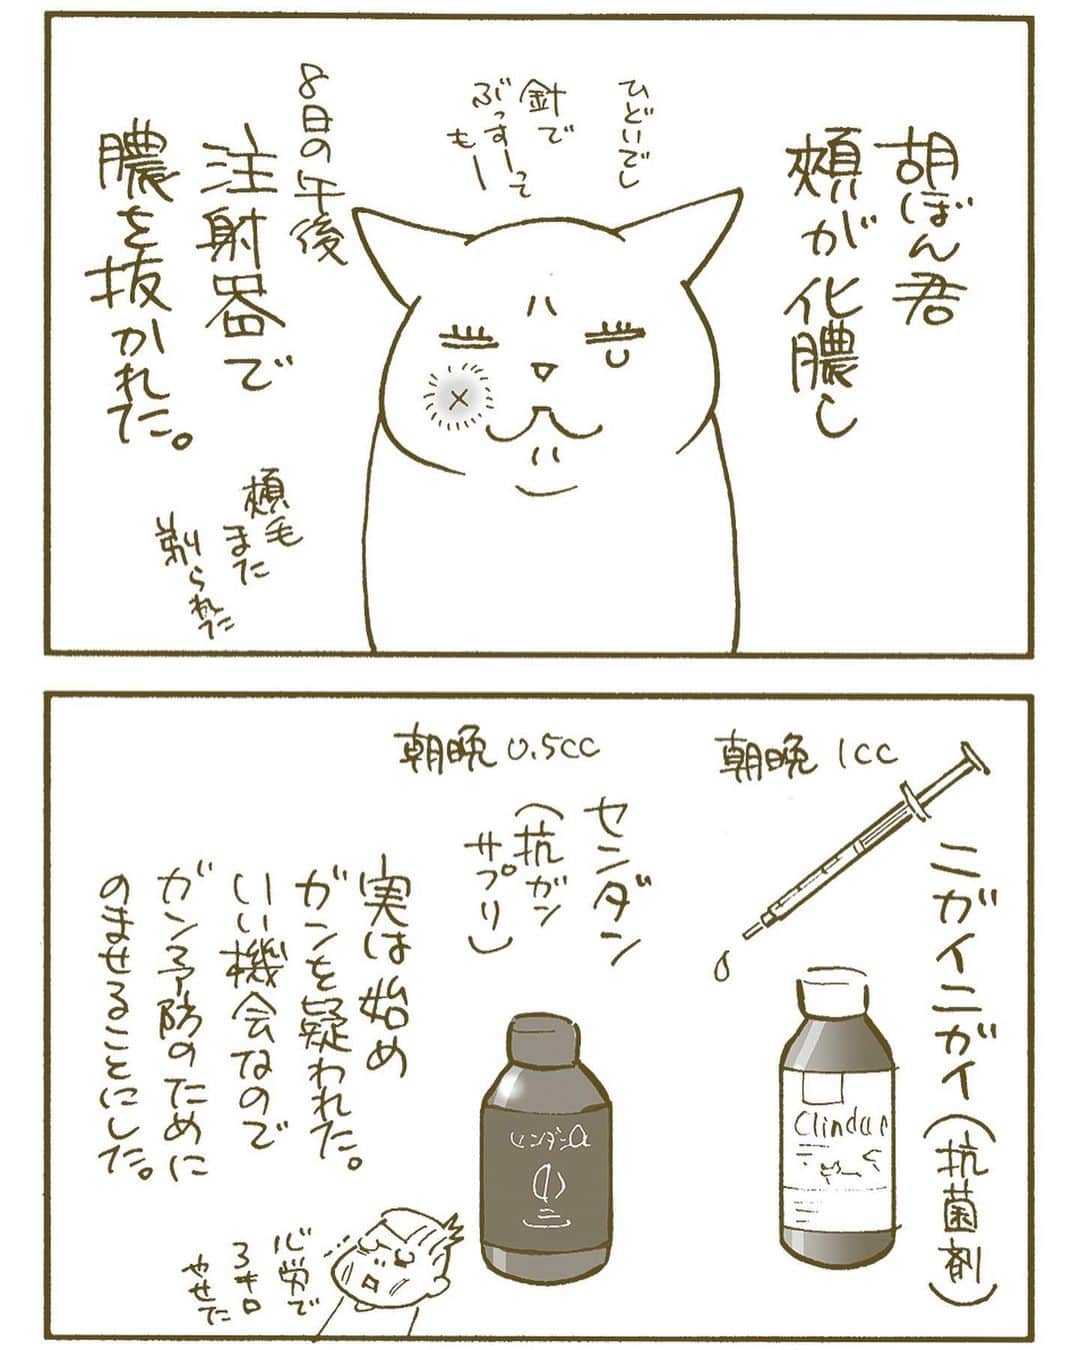 胡ぼん君
頬が化膿し
ひどいでし
針で
ぶっすーって
もー
8日の午後
注射器で
膿を抜かれた。
頬毛
また
剃られた
ニガイニガイ(抗菌剤)
朝晩 1cc
朝晩 0.5cc
センダン
(抗ガン
サプリ)
実は始め
ガンを疑われた。
いい機会なので
ガン予防のために
のませることにした。
心労で
3キロ
やせた